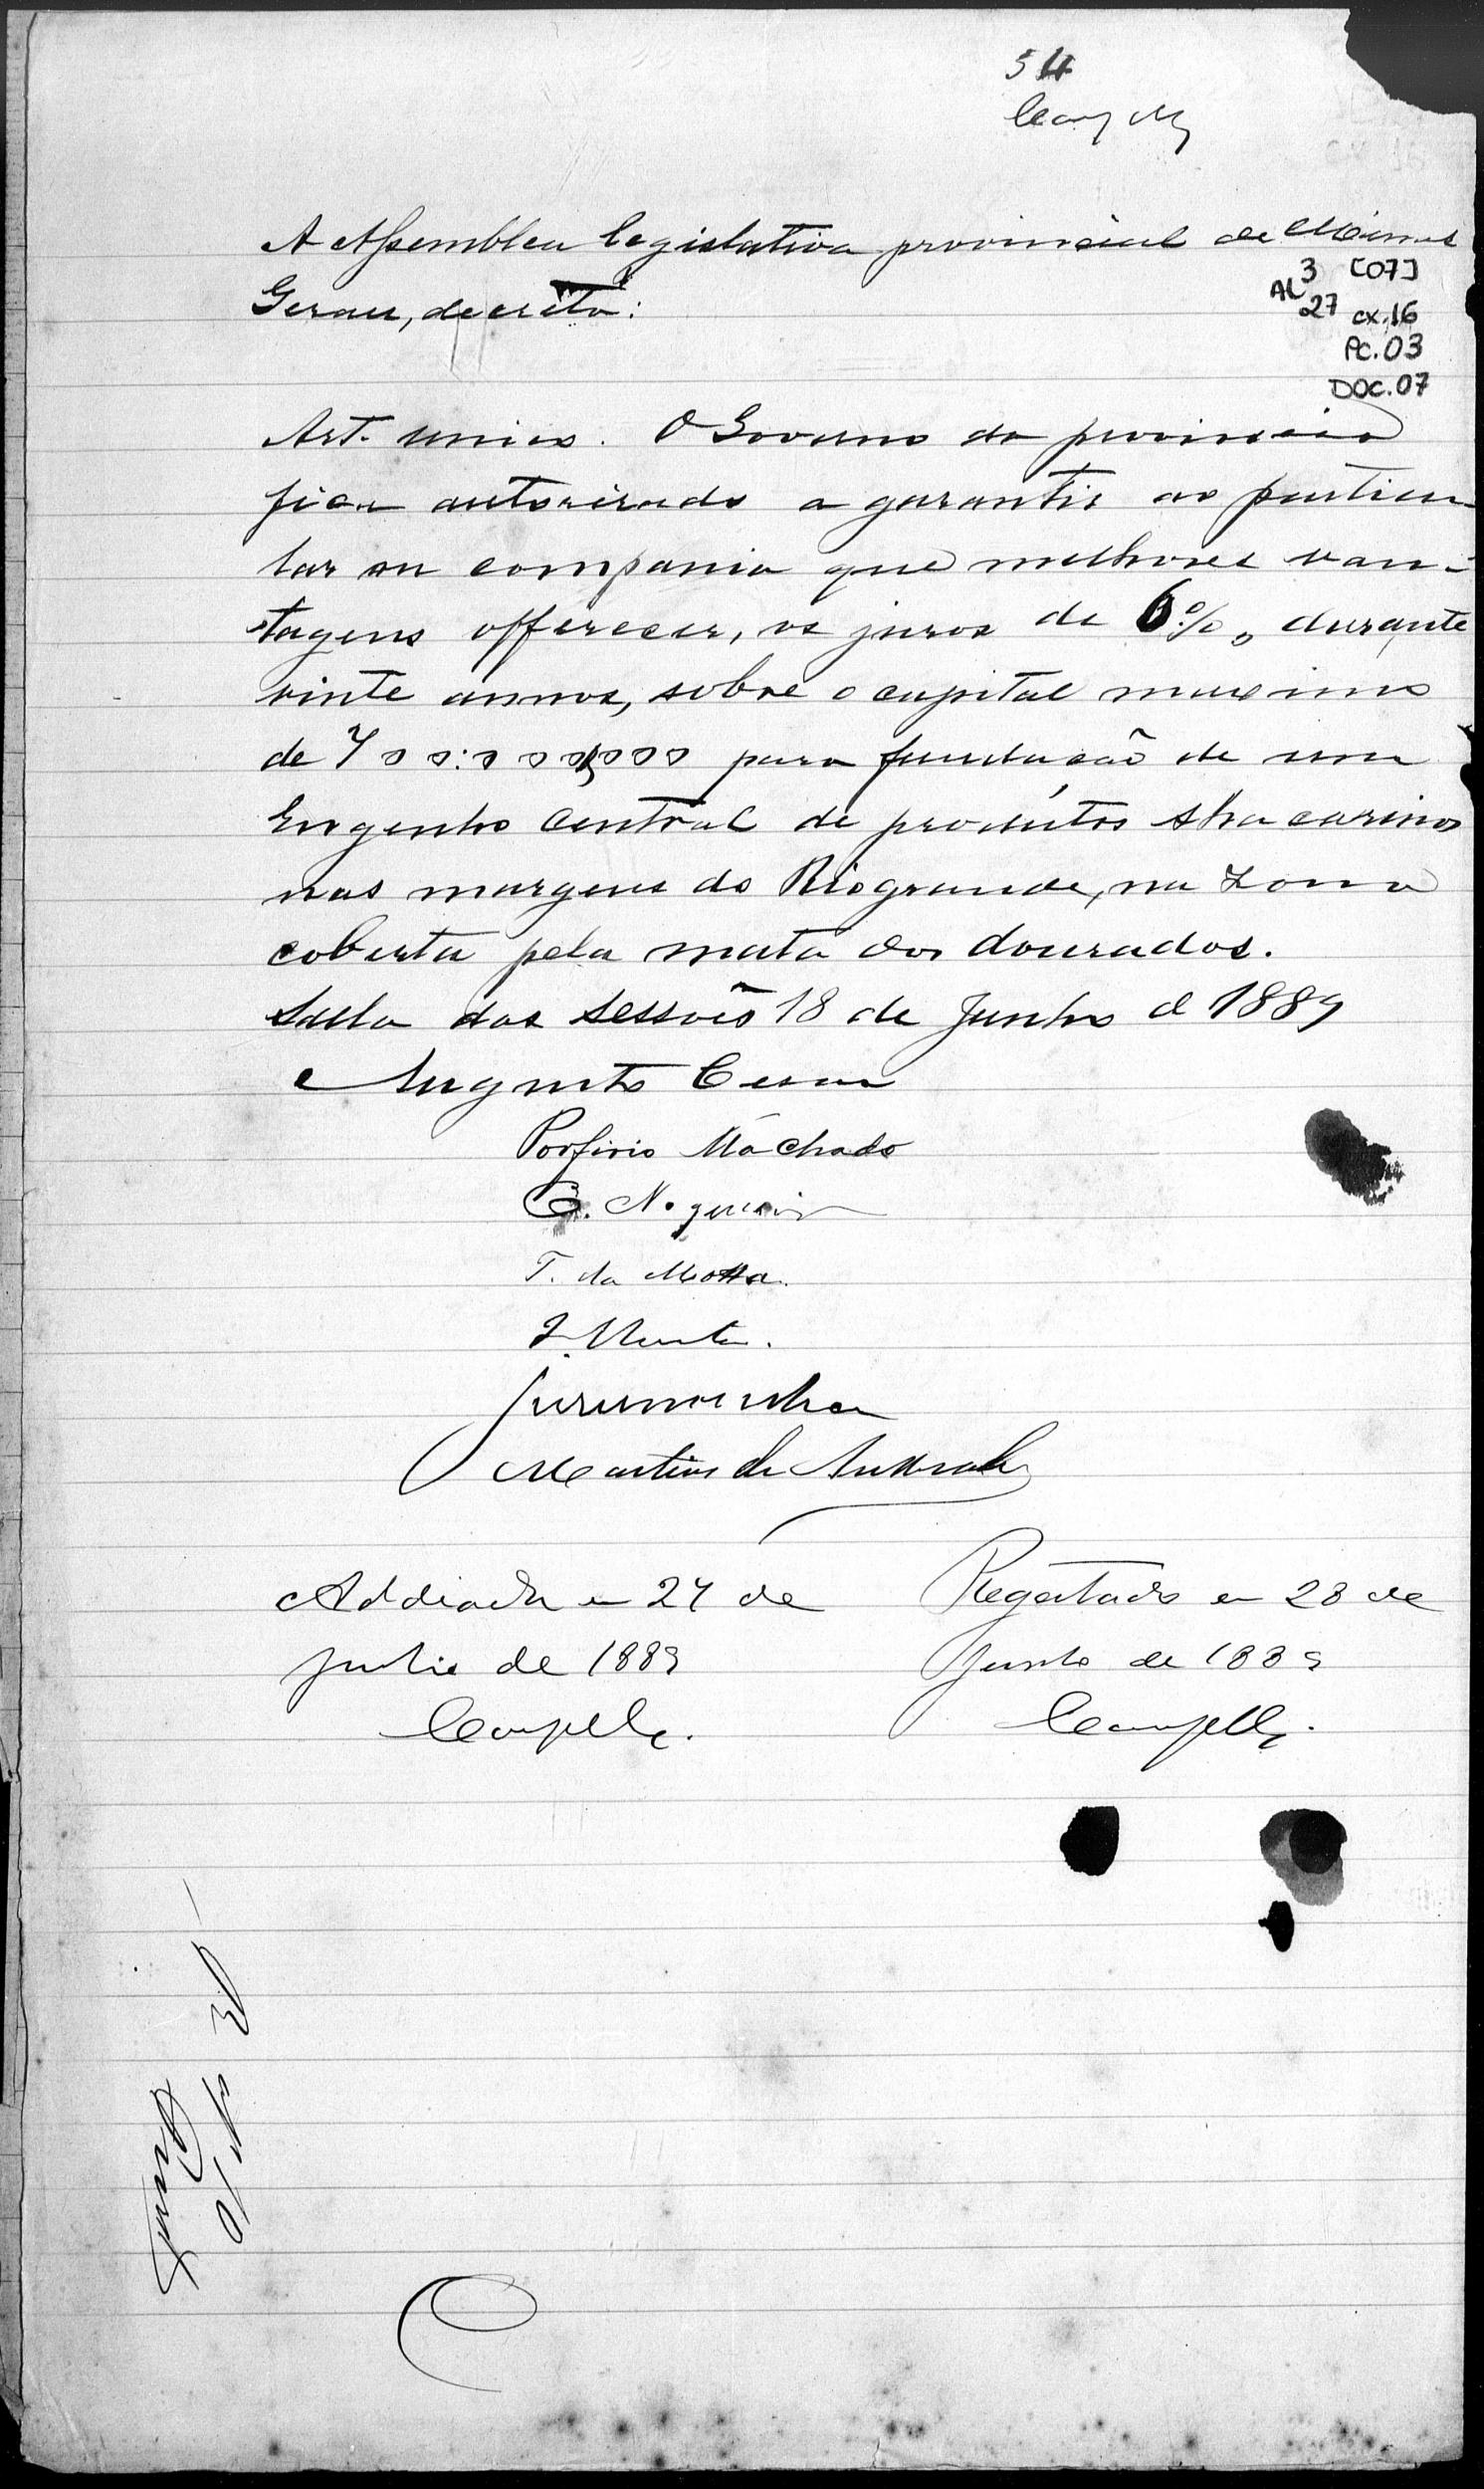 54
A Assemblea legislativa provincial de Minas
Geraes, decreta:
AL 3 [07]
27 cx.16
Pc.03
DOC.07
Art. unico. O Governo da provincia
fica autorisado a garantir ao particu
lar ou compania que melhores van-
tagens offerecer, os juros de 6%, durante
vinte annos, sobre o capital maximo
de 700:000$000 para fundação de um
Engenho Central de productos sacarinos
nas margens do Rio grande, na zona
coberta pela mata dos dourados.
Salla das sessões 18 de Junho d 1889
Augusto Cesar
Porfirio Machado
C. Nogueira
T. da Motta.
Martins de Andrade
Addiada em 27 de
Junho de 1889
Regeitado em 28 de
Junho de 1889